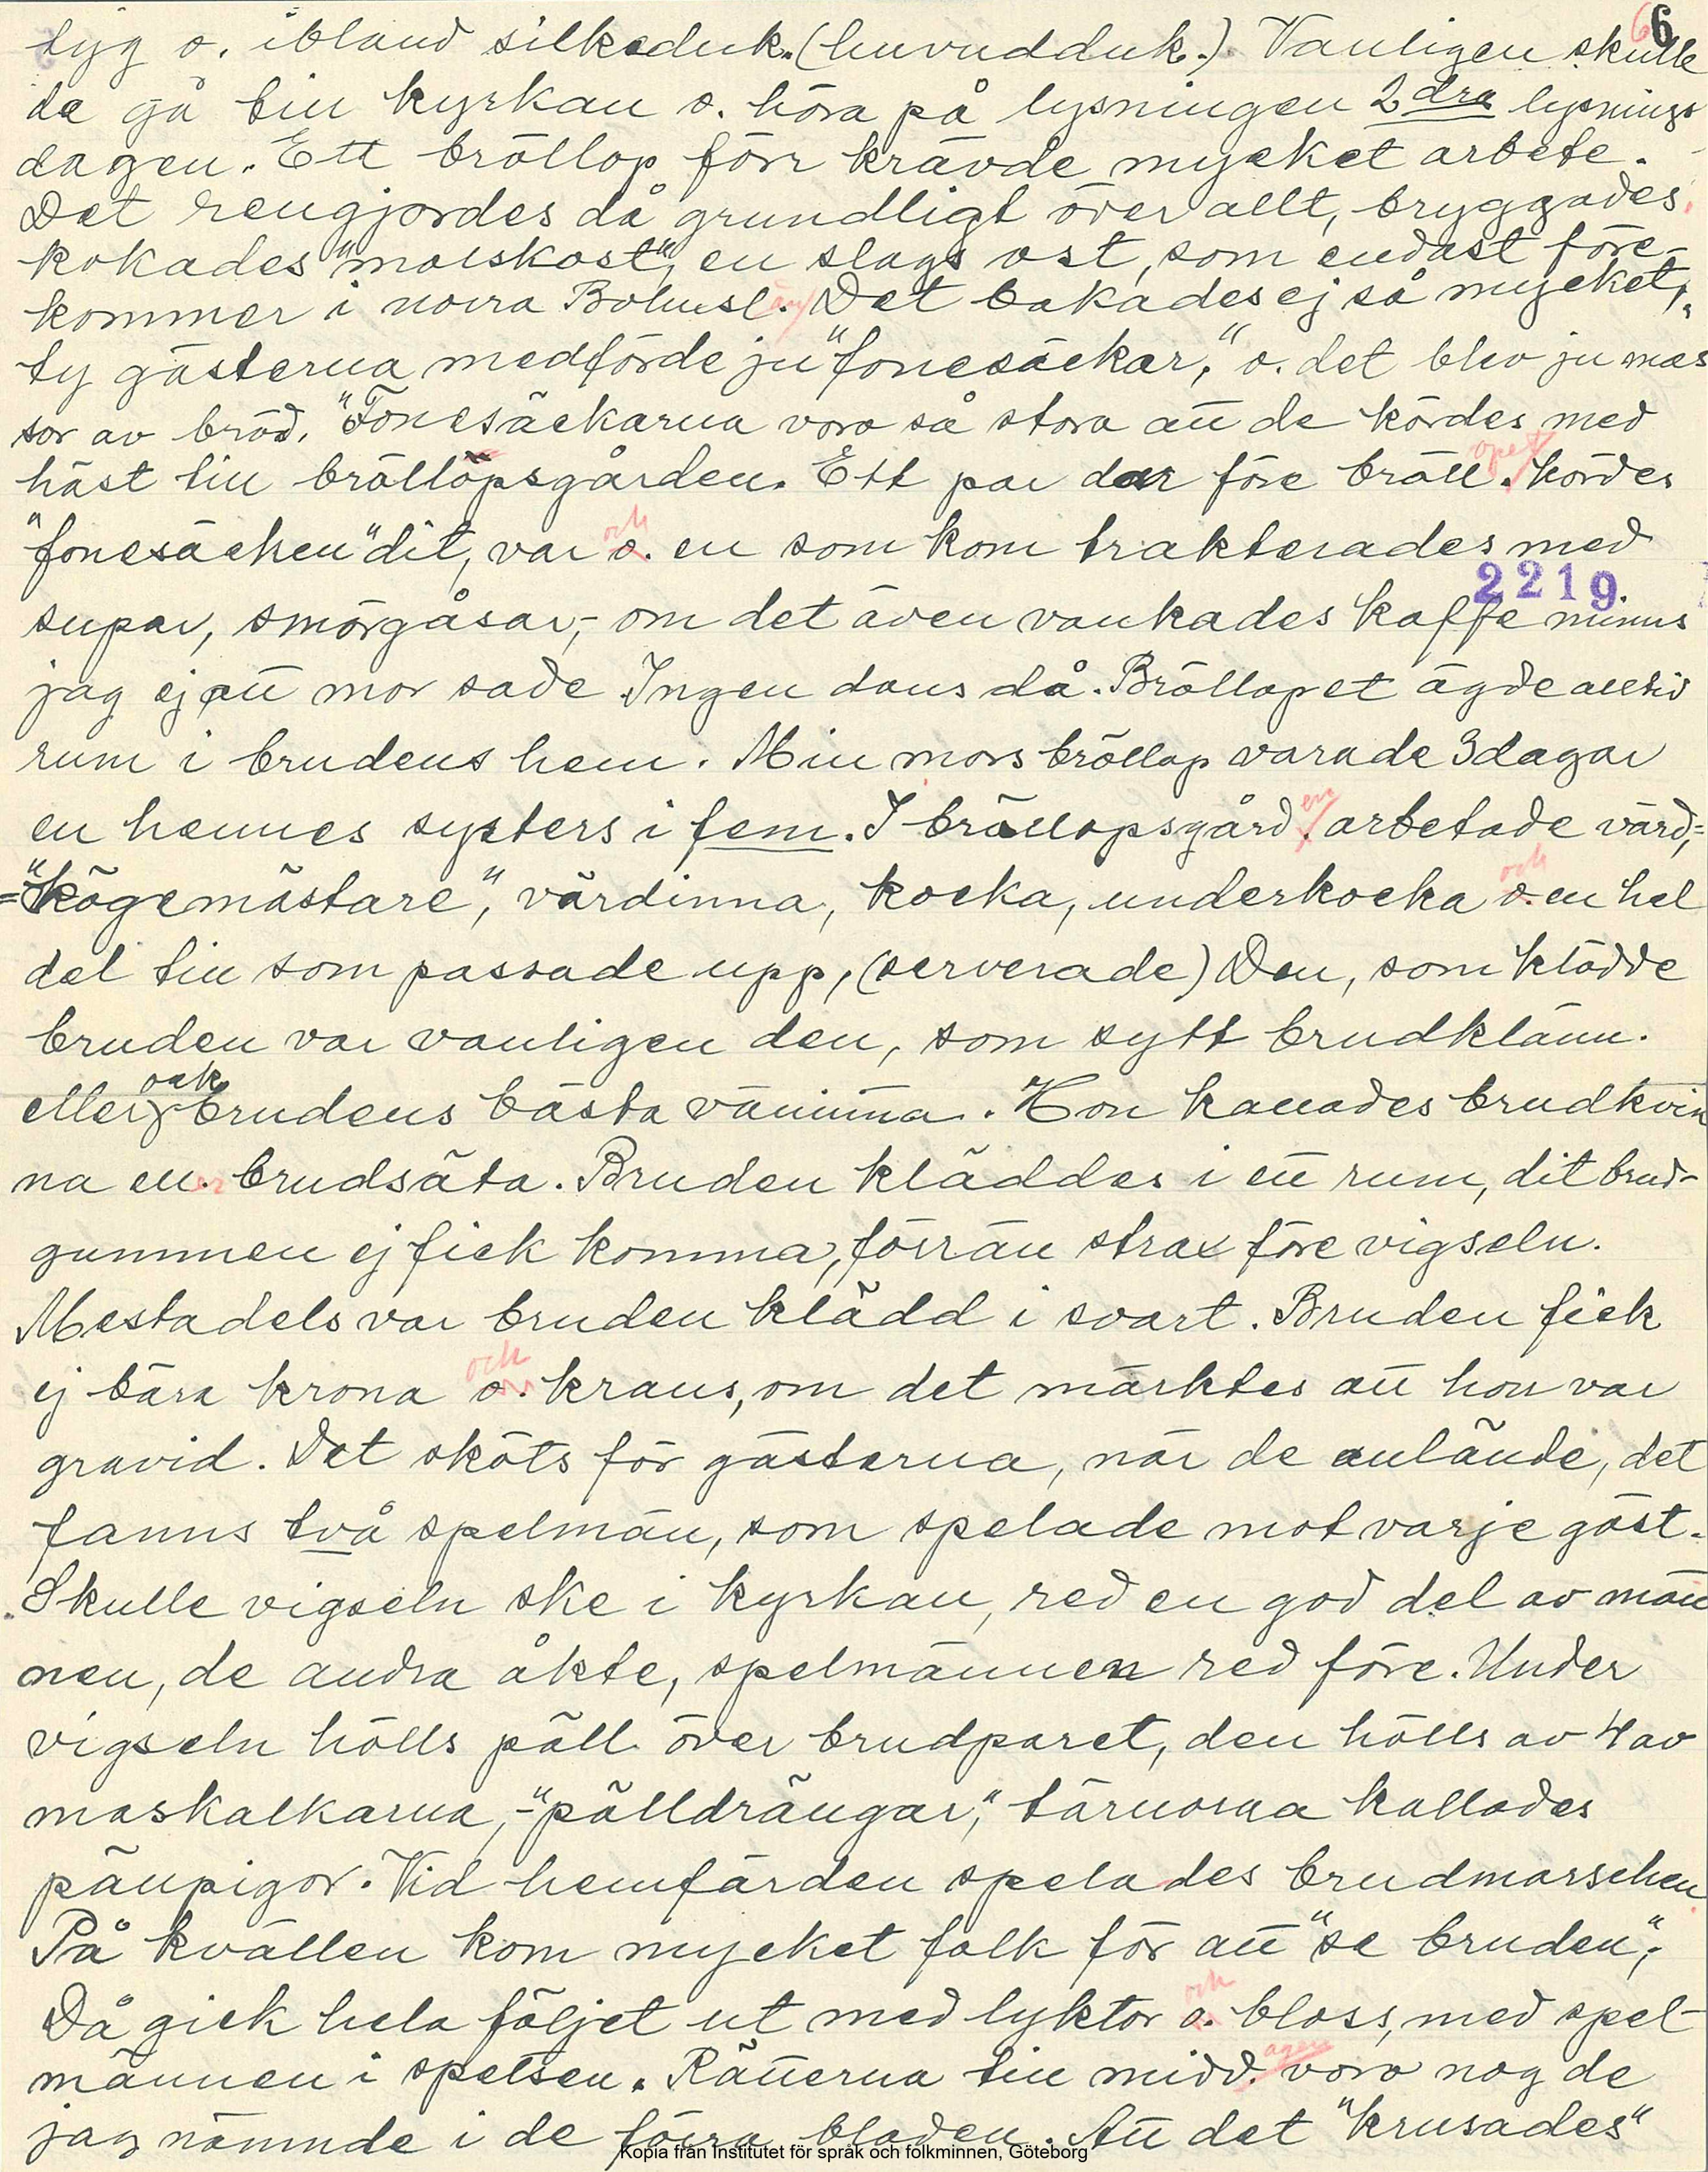 6 6
tyg o. ibland silkeduk. (huvudduk.) Vanligen skulle
de gå till kyrkan o. höra på lysningen 2dra lysnings
dagen. Ett bröllop förr krävde mycket arbete.
Det rengjordes då grundligt över allt, bryggades,
kokades "moiskost", en slags ost, som endast före-
kommer i norra Bohusl.än/ Det bakades ej så mycket,
ty gästerna medförde ju "fonesäckar," o. det blev ju mas
sor av bröd. "Fonesäckarna voro så stora att de kördes med
häst till bröllopsgården. Ett par dar före bröll.opet kördes
"fonesäcken" dit, var o. och en som kom trakterades med
2219
supar, smörgåsar,- om det även vankades kaffe minns
jag ej att mor sade. Ingen dans då. Bröllopet ägde alltid
rum i brudens hem. Min mors bröllop varade 3 dagar
en hennes systers i fem. I bröllopsgård.en arbetade värd,=
="kögemästare", värdinna, kocka, underkocka o. och en hel
del till som passade upp, (serverade) Den, som klädde
bruden var vanligen den, som sytt brudklänn.
eller ock brudens bästa väninna. Hon kallades brudkvin
na ell.er brudsäta. Bruden kläddes i ett rum, dit brud-
gummen ej fick komma, förrän strax före vigseln.
Mestadels var bruden klädd i svart. Bruden fick
ej bära krona o. och krans, om det märktes att hon var
gravid. Det sköts för gästerna, när de anlände, det
fanns två spelmän, som spelade mot varje gäst.
Skulle vigseln ske i kyrkan, red en god del av män
nen, de andra åkte, spelmännen red före. Under
vigseln hölls päll över brudparet, den hölls av 4 av
maskalkarna,-"pälldrängar," tärnorna kallades
pänpigor. Vid hemfärden spelades brudmarschen.
På kvällen kom mycket folk för att "se bruden",
Då gick hela följet ut med lyktor o. och bloss, med spel-
männen i spetsen. Rätterna till midd.agen voro nog de
jag nämnde i de förra bladen. Att det "krusades"
Kopia från Institutet för språk och folkminnen, Göteborg